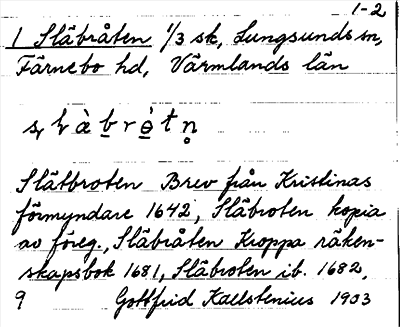 1-2
1 Släbråten 1/3 sk, Lungsunds sn,
Färnebo hd, Värmlands län
Slätbroten Brev från Kristinas
förmyndare 1642, Släbroten kopia
av föreg., Släbråten Kroppa räken-
skapsbok 1681, Släbroten ib. 1682,
9 Gottfrid Kallstenius 1903